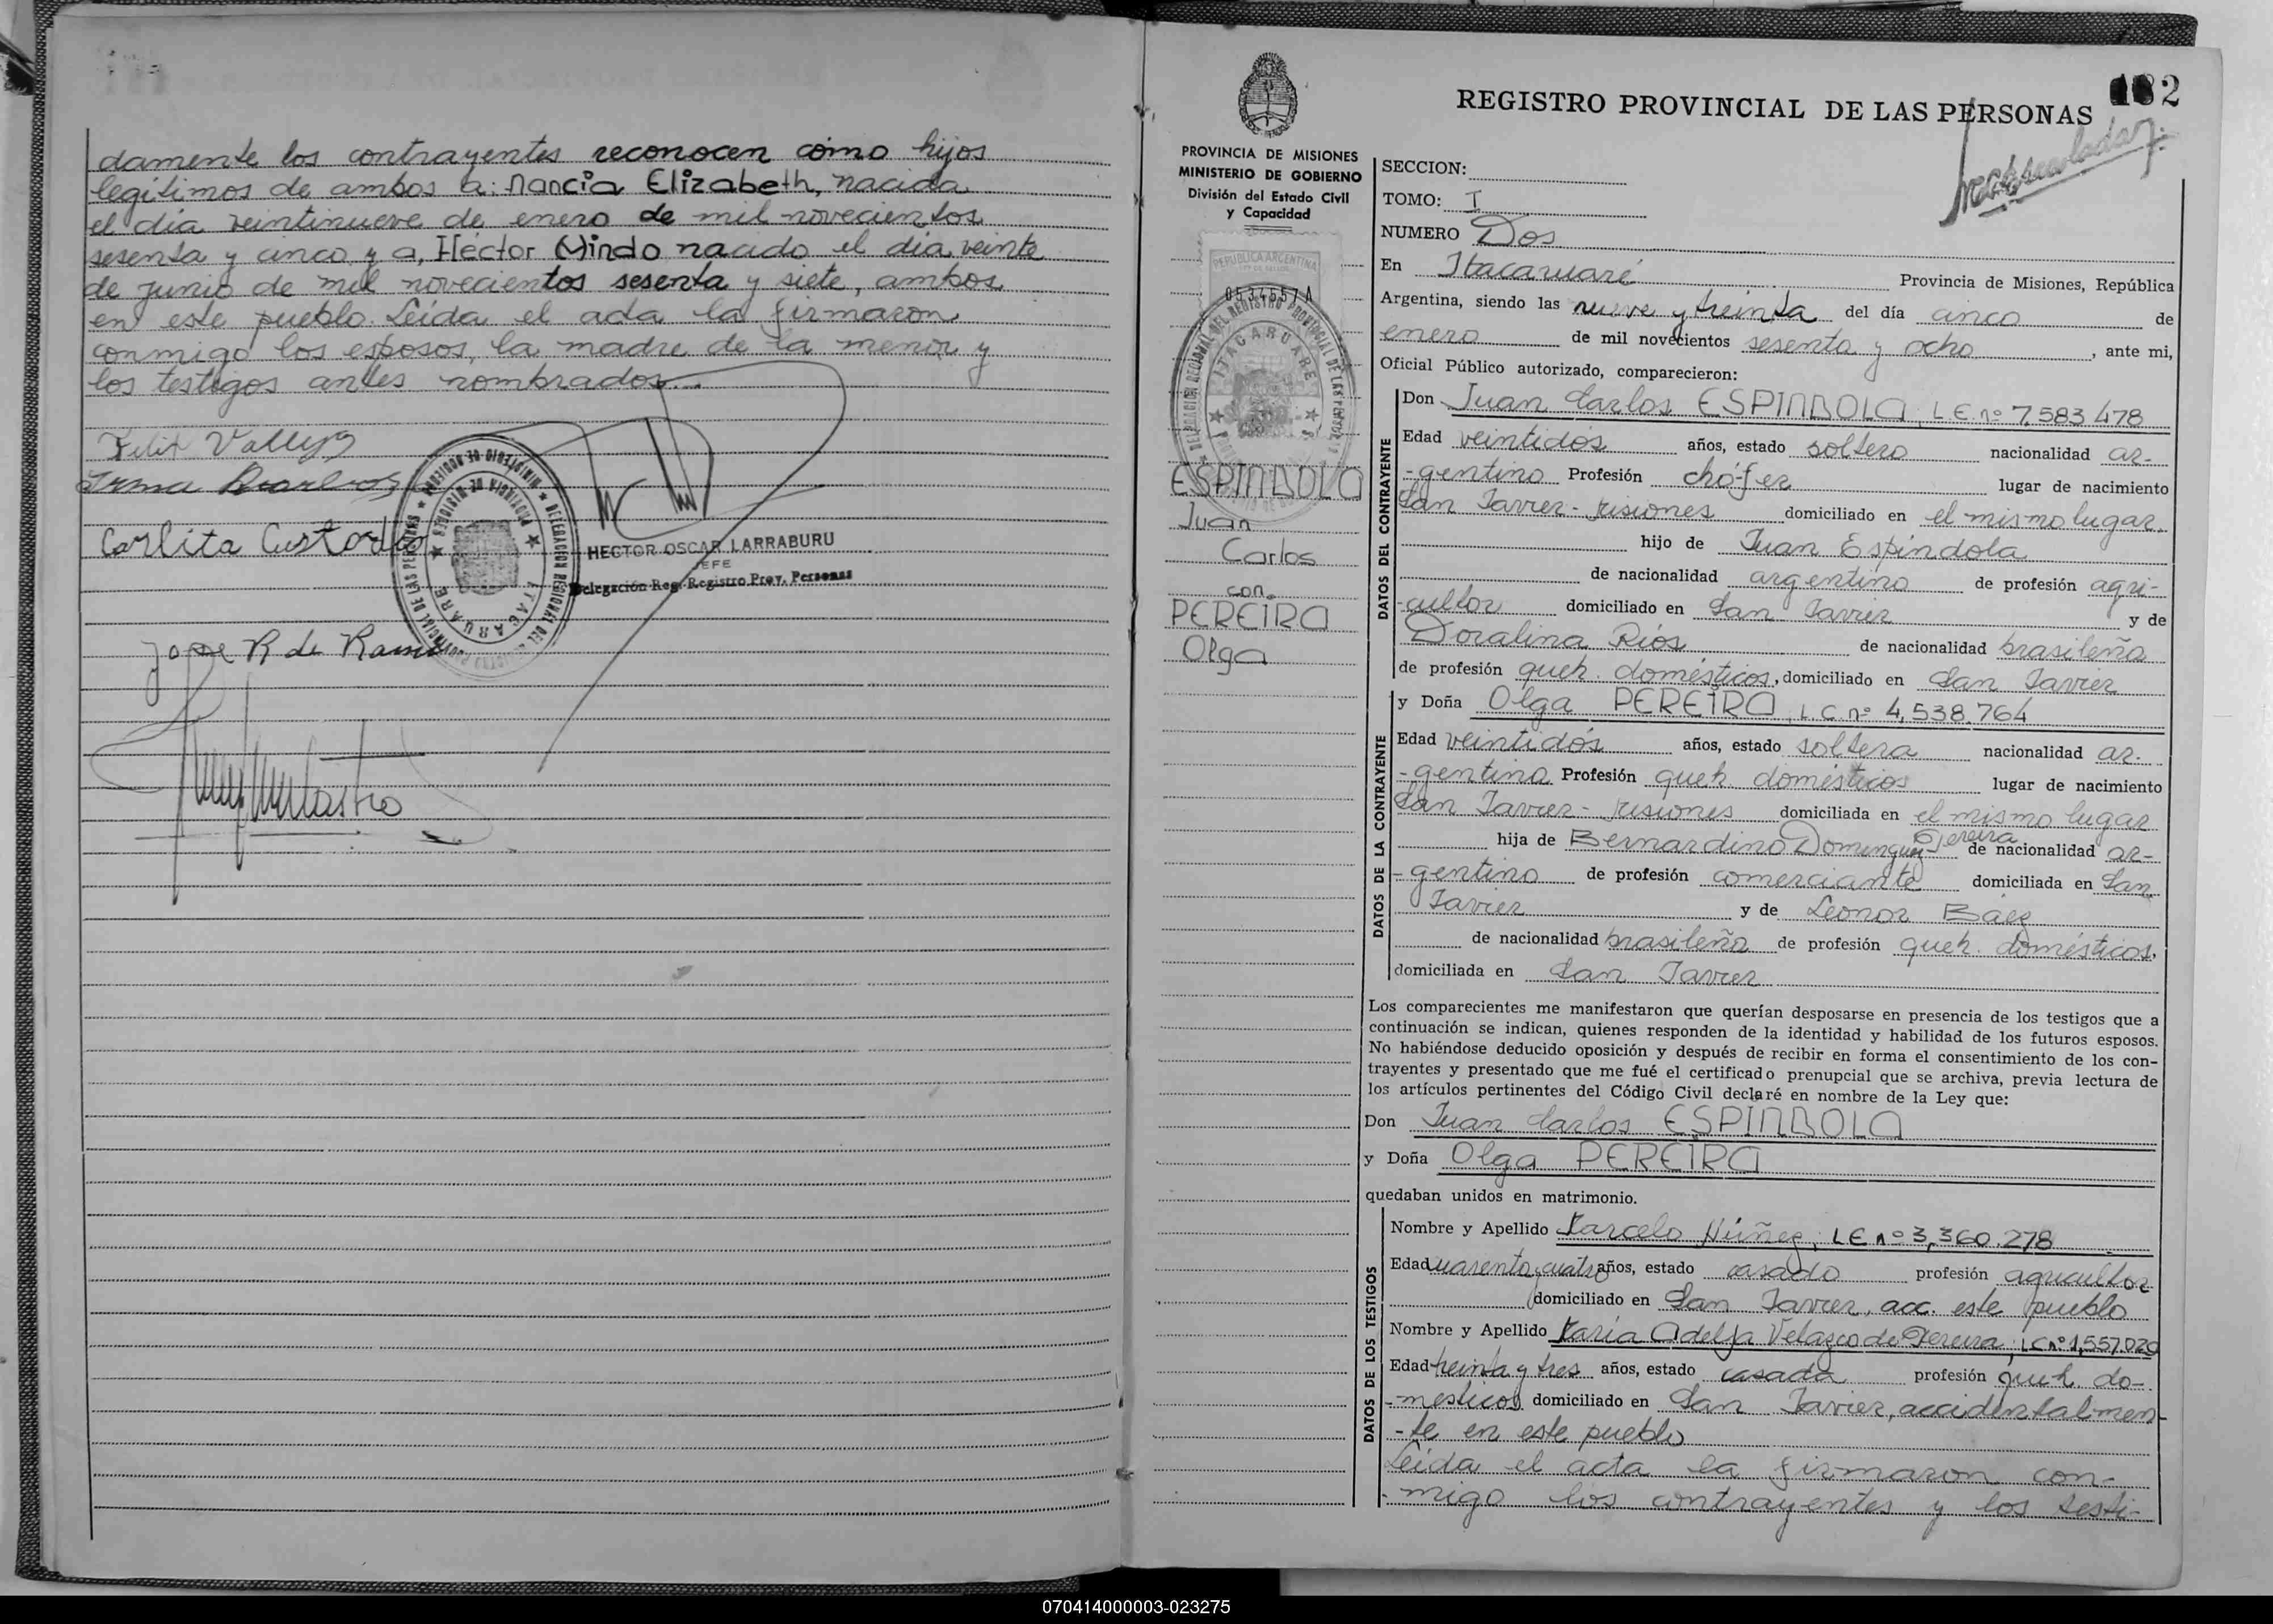 damente los contrayentes reconocen como hijos
legítimos de ambos a: Nancia Elizabeth, nacida
el día veintinueve de enero de mil novecientos
sesenta y cinco y a, Héctor Mindo nacido el día veinte
de junio de mil novecientos sesenta y siete, ambos
en este pueblo. Leída el acta la firmaron
conmigo los esposos, la madre de la menor y
los testigos antes nombrados.
Carlita Custodio
HECTOR OSCAR LARRABURU
JEFE
Delegación Reg. Registro Prov. Personas
Jose R de Ramo
REGISTRO PROVINCIAL DE LAS PERSONAS
2
PROVINCIA DE MISIONES
MINISTERIO DE GOBIERNO
División del Estado Civil
y Capacidad
REPUBLICA ARGENTINA
0534557A
ITACARUARE
ESPINDOLA
Juan
Carlos
con
PEREIRA
Olga
SECCION:
TOMO: I
NUMERO Dos
En Itacaruaré Provincia de Misiones, República
Argentina, siendo las nueve y treinta del día cinco de
enero de mil novecientos sesenta y ocho, ante mi,
Oficial Público autorizado, comparecieron:
DATOS DEL CONTRAYENTE
Don Juan Carlos ESPINDOLA, L.E. nº 7,583 478
Edad veintidós años, estado soltero nacionalidad ar-
-gentino Profesión chófer lugar de nacimiento
San Javier - Misiones domiciliado en el mismo lugar.
hijo de Juan Espíndola
de nacionalidad argentino de profesión agri-
-cultor domiciliado en San Javier y de
Doralina Ríos de nacionalidad brasileña
de profesión queh. domésticos, domiciliado en San Javier
DATOS DE LA CONTRAYENTE
y Doña Olga PEREIRA, L.C. nº 4,538.764
Edad veintidós años, estado soltera nacionalidad ar-
-gentina Profesión queh. domésticos lugar de nacimiento
San Javier - Misiones domiciliada en el mismo lugar
hija de Bernardino Domingues Pereira de nacionalidad ar-
-gentino de profesión comerciante domiciliada en San
Javier y de Leonor Báez
de nacionalidad brasileña de profesión queh. domésticos,
domiciliada en San Javier
Los comparecientes me manifestaron que querían desposarse en presencia de los testigos que a
continuación se indican, quienes responden de la identidad y habilidad de los futuros esposos.
No habiéndose deducido oposición y después de recibir en forma el consentimiento de los con-
trayentes y presentado que me fué el certificado prenupcial que se archiva, previa lectura de
los artículos pertinentes del Código Civil declaré en nombre de la Ley que:
Don Juan Carlos ESPINDOLA
y Doña Olga PEREIRA
quedaban unidos en matrimonio.
DATOS DE LOS TESTIGOS
Nombre y Apellido Marcelo Núñez, LE nº 3,360.278
Edad cuarenta y cuatro años, estado casado profesión agricultor
domiciliado en San Javier, acc. este pueblo
Nombre y Apellido María Adelja Velazco de Pereira, LC nº 1,557.020
Edad treinta y tres años, estado casada profesión queh. do-
-mésticos domiciliado en San Javier, accidentalmen-
-te en este pueblo
Leída el acta la firmaron con-
-migo los contrayentes y los testi-
070414000003-023275